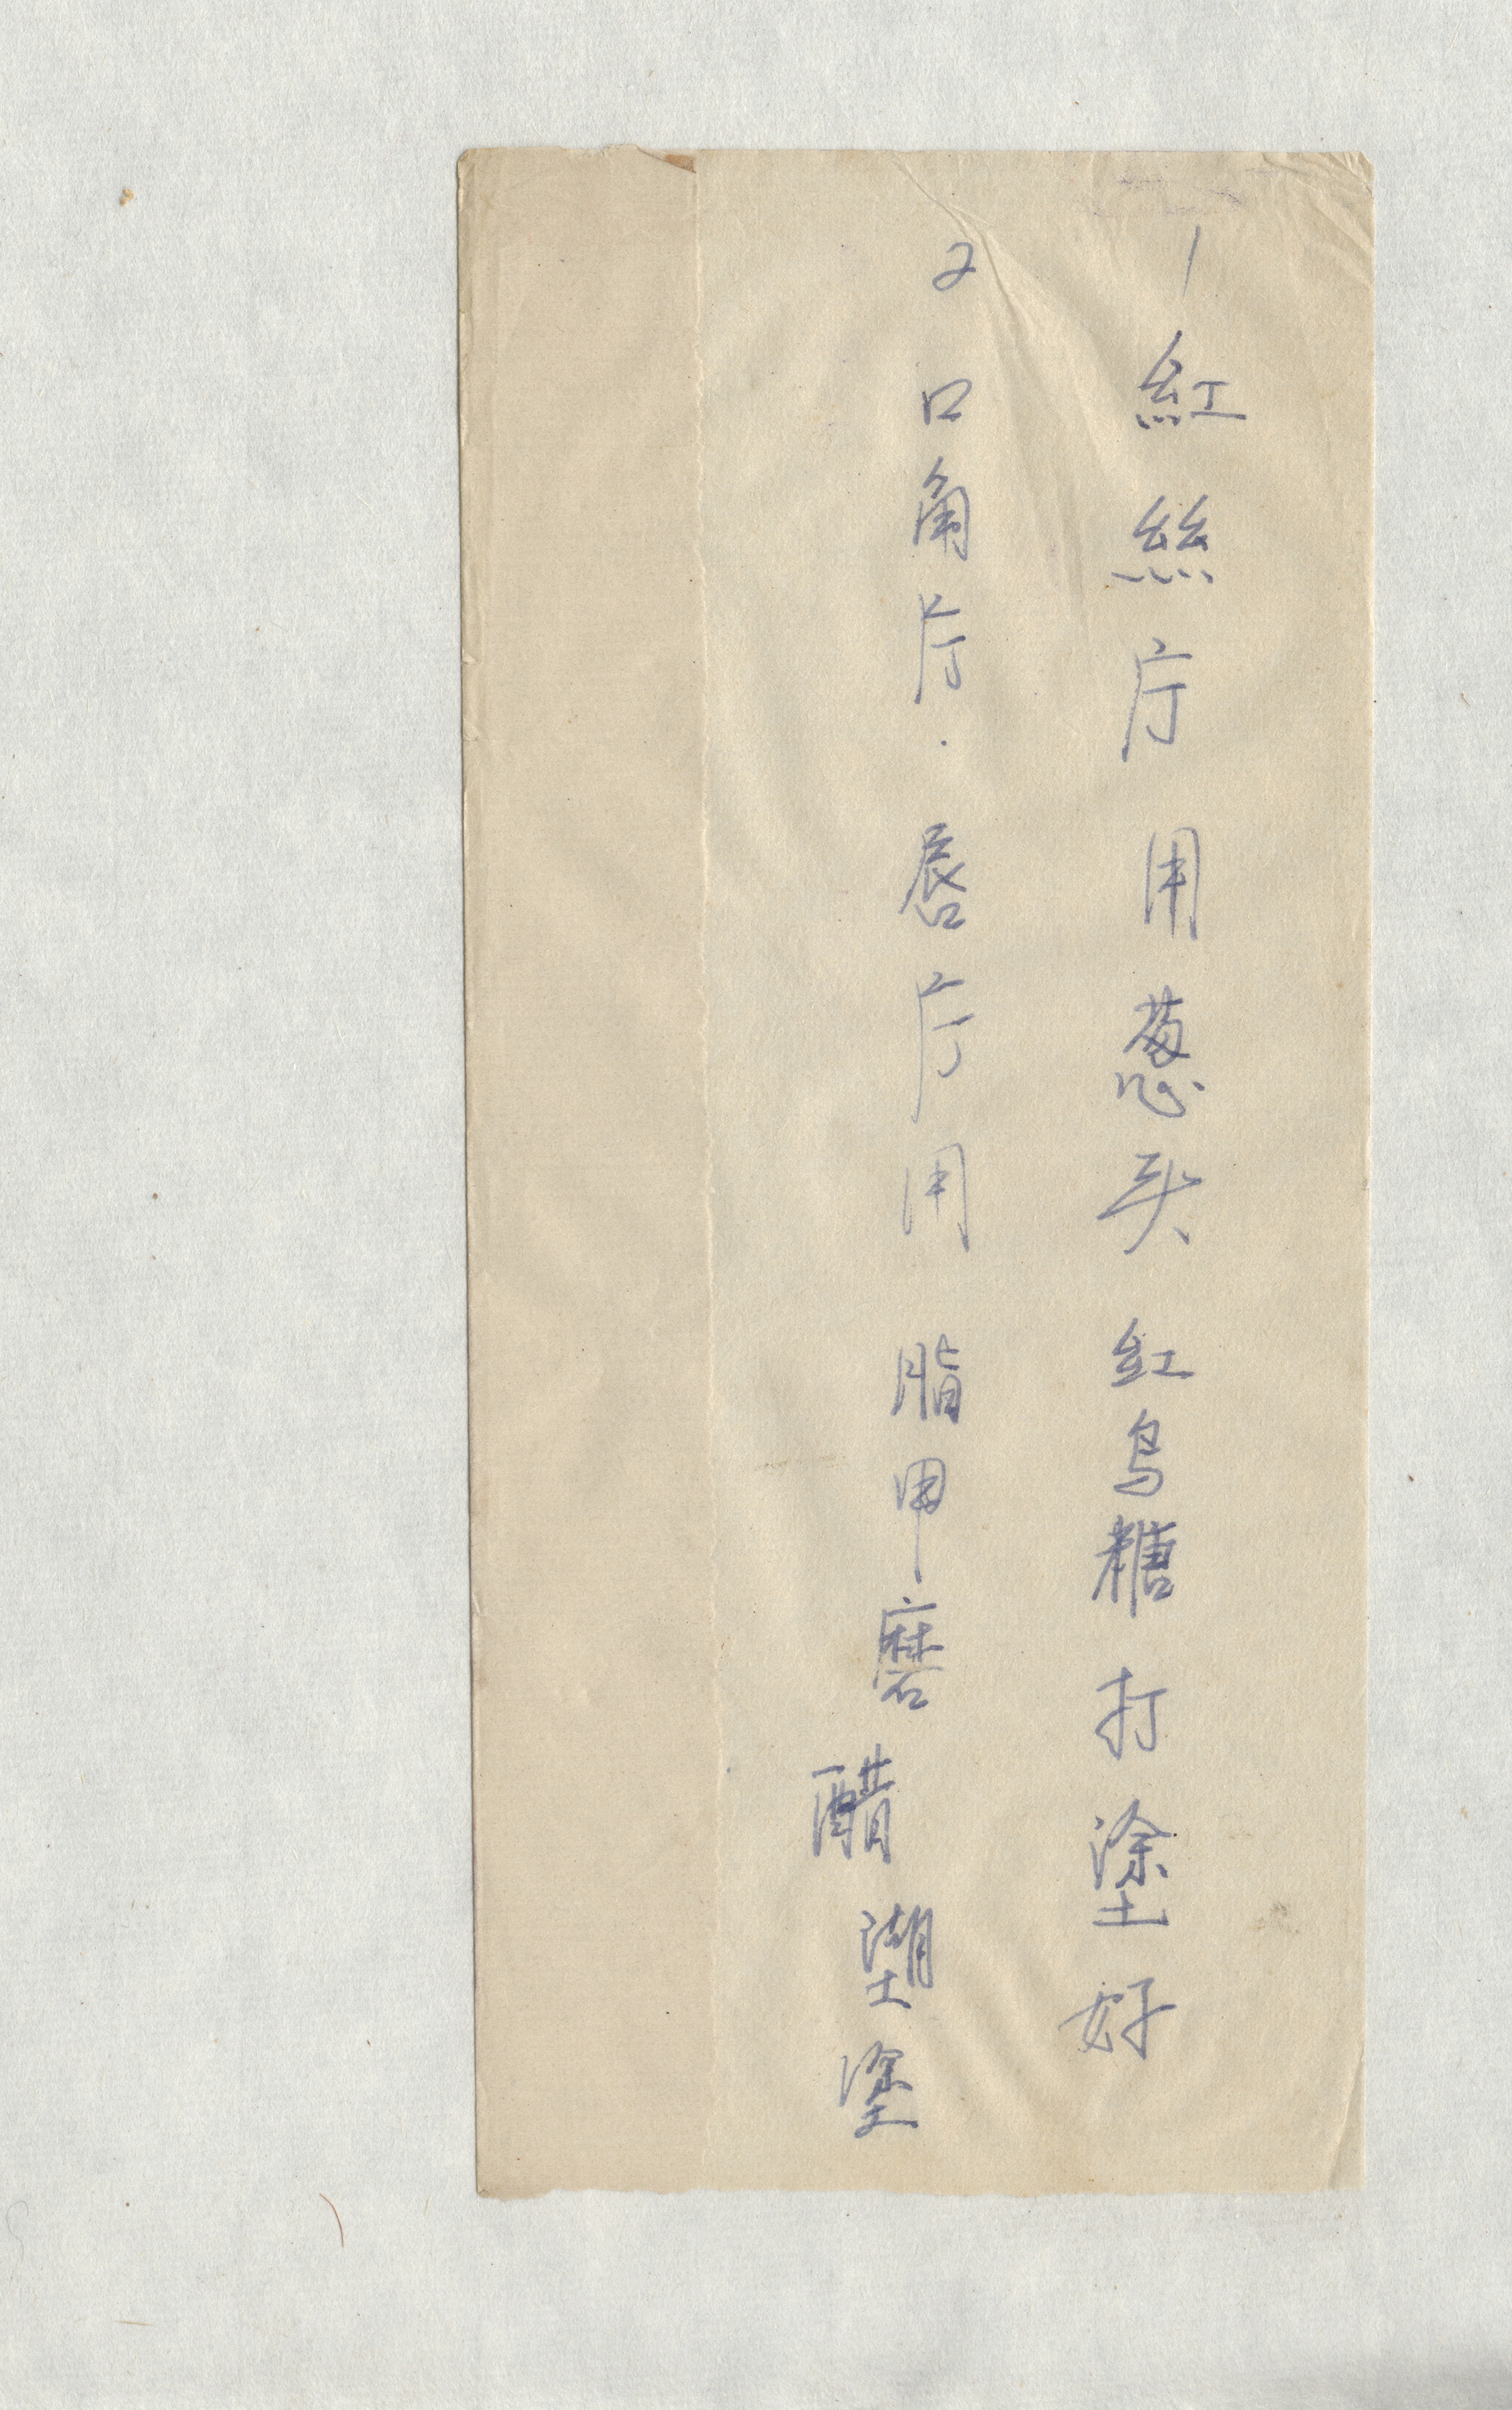 1 紅絲疔 用葱头 紅烏糖 打塗好
2 口角疔．唇疔用 脂甲磨醋塗